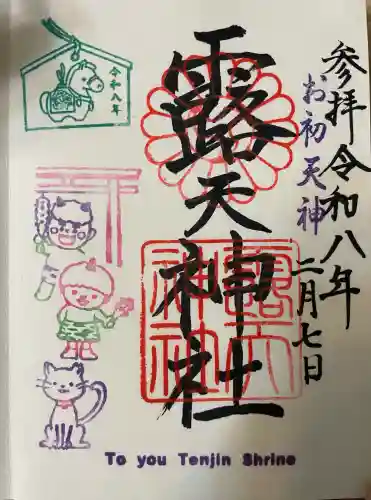 参拝令和八年
二月七日
お初天神
露天神社
露天神社
令和八年
To you Tenjin Shrine